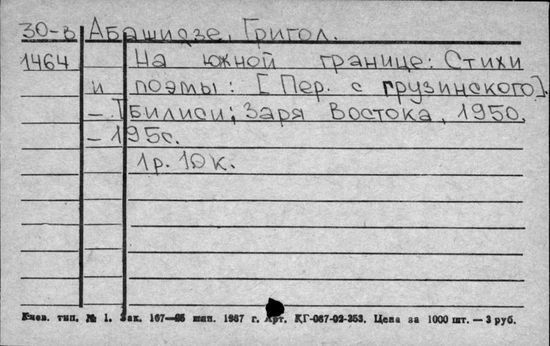 30-в Абашидзе, Григол.
1464 На южной границе: Стихи
и поэмы: [Пер. с грузинского].
– Тбилиси; Заря Востока, 1950.
– 195с.
1р. 10к.
Киев. тип. № 1. Зак. 167—95 шип. 1987 г. Арт. КГ-067-02-353. Цена за 1000 шт. — 3 руб.